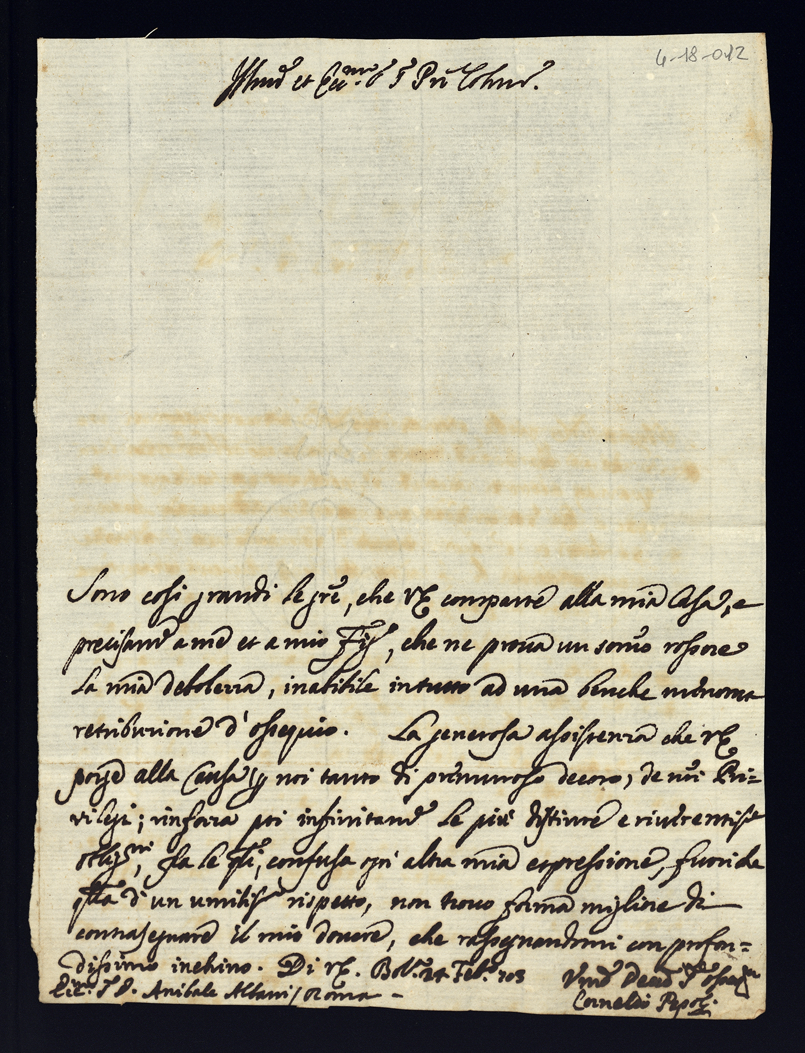 4-18-012
Illmo et Eccmo Sr Pn Colmo.
Sono così grandi le gre, che VE comparte alla mia Casa, e
precisamte a me et a mio Figo, che ne prova un sommo rossore
la mia debolezza, inabitile in tutto ad una benche menoma
retribuzione d'ossequio. La generosa assistenza che VE
porge alla Causa noi tanto di premuroso decoro, de nri Pri=
vilegi; rinforza poi infinitamte le più distinte e riverentisse
obligni, fra le qli, confusa ogni altra mia espressione, fuori che
qlla d'un umilissmo rispetto, non trovo forma migliore di
contrasegnare il mio dovere, che rassegnandomi con profon=
dissimo inchino. Di VE. Bola. 24 Feb. 703
Umo Devmo Sre
Ecc. S D. Anibale Albani / Roma -
Cornelio Pepoli